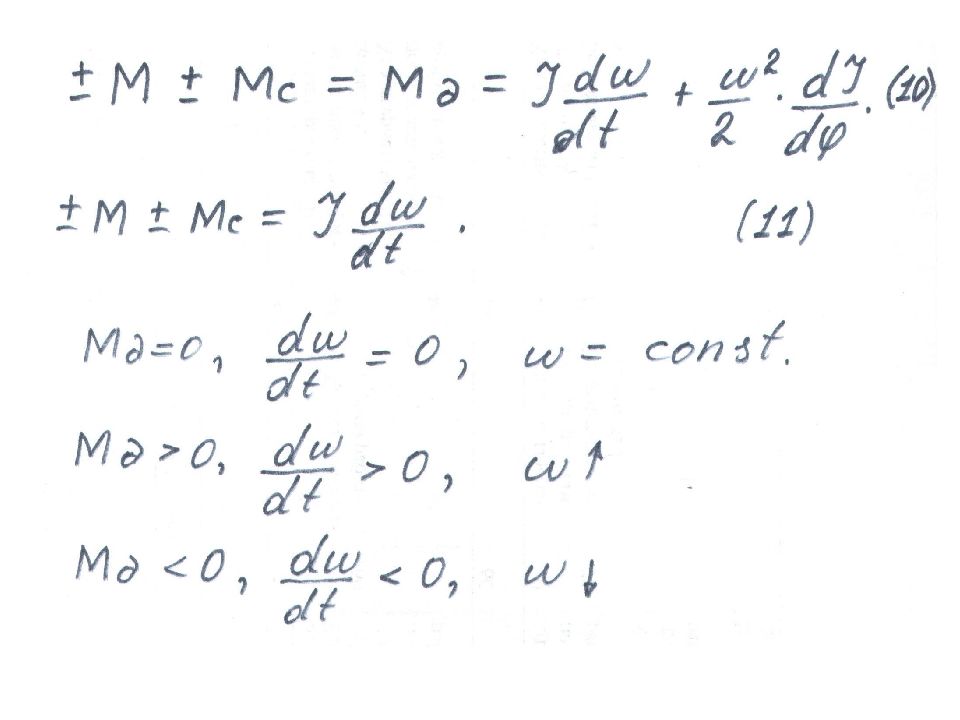 ± M ± Mc = M∂ = J dω/dt + ω²/2 · dJ/dφ. (10)
± M ± Mc = J dω/dt . (11)
M∂=0, dω/dt = 0, ω = const.
M∂>0, dω/dt > 0, ω↑
M∂<0, dω/dt < 0, ω↓